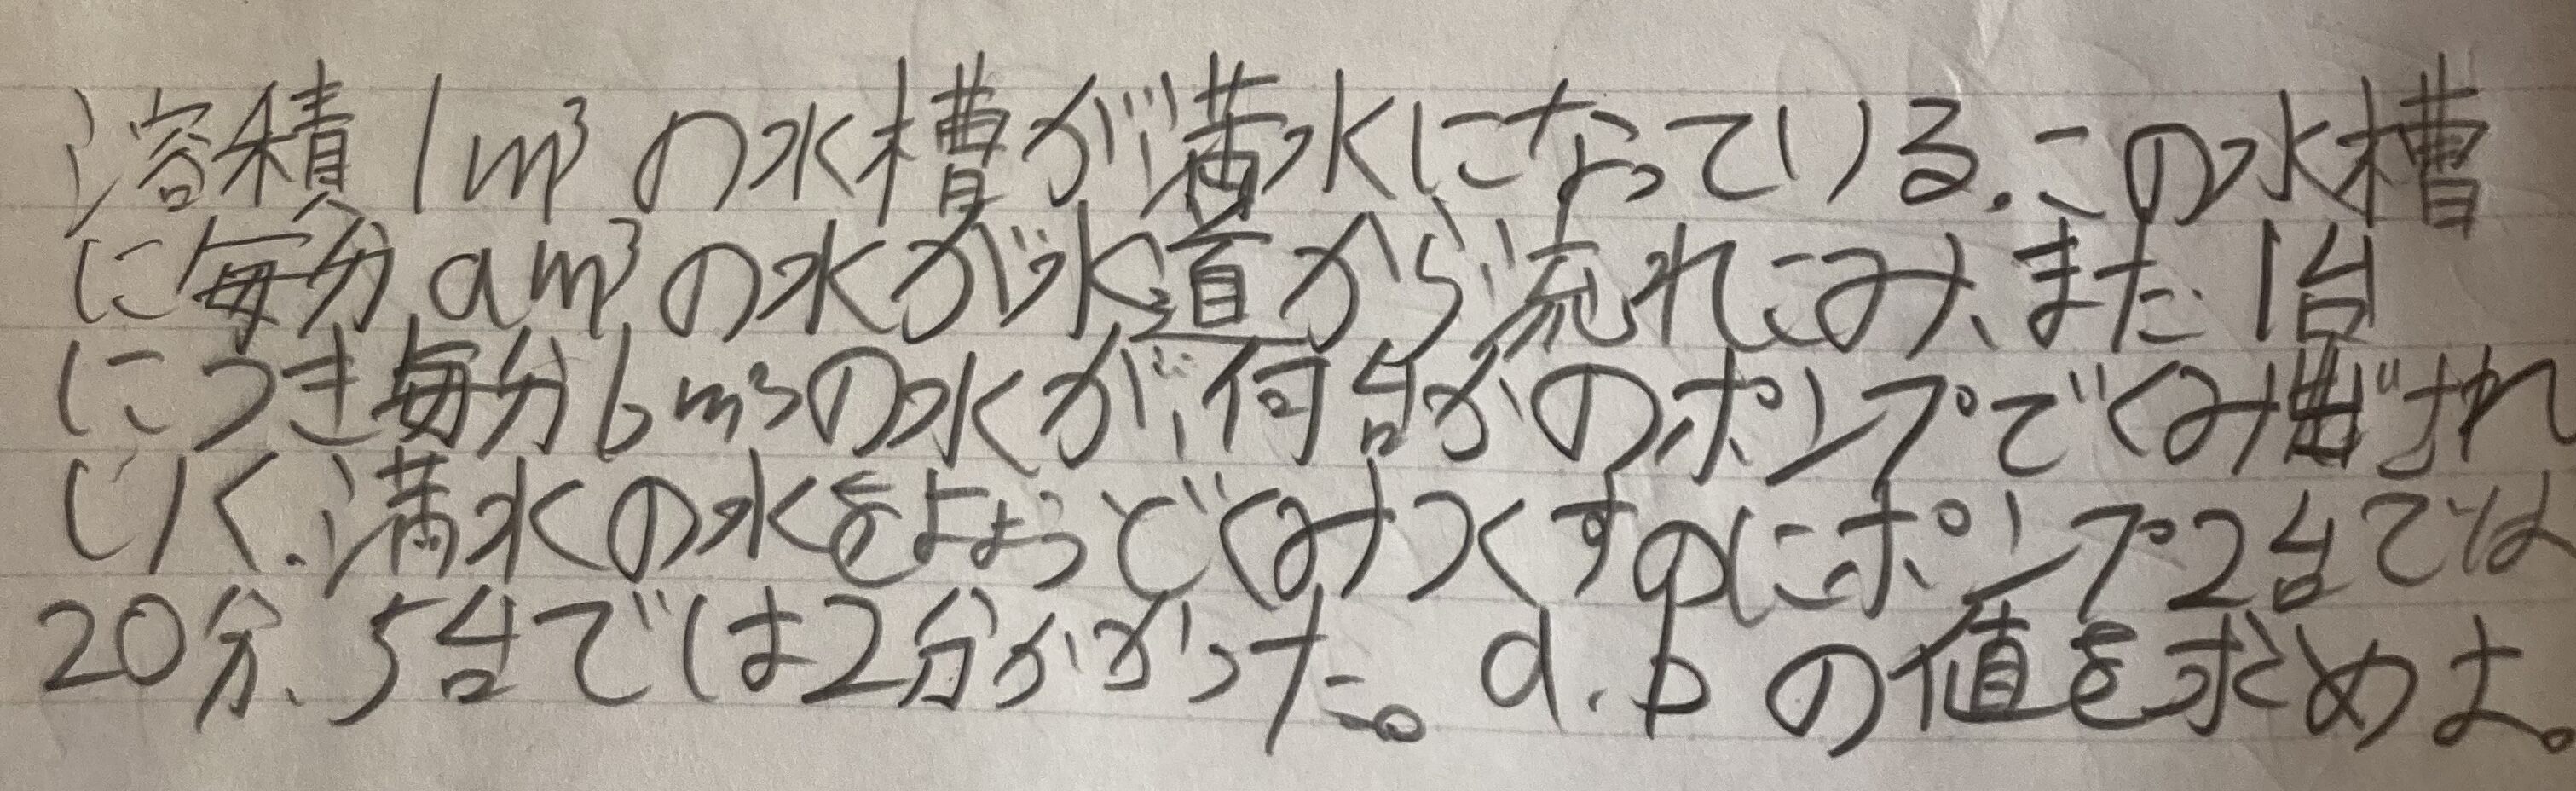 溶積1m³の水槽が満水になっている.この水槽
に毎分am³の水が水道から流れこみ、また1台
につき毎分bm³の水が、何台かのポンプでくみ出され
いく.満水の水をようどくみつくすのにポンプ2台では
20分、5台では2分かかった。a.bの値を求めよ。